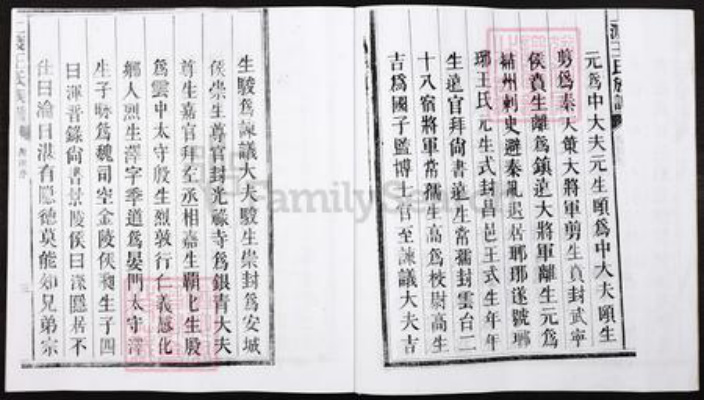 元爲中大夫元生頤爲中大夫頤生
剪爲秦大策大將軍剪生賁封武寧
侯賁生離爲鎮邊大將軍離生元爲
州刺史避秦亂遷居瑯琊遂號瑯
琊王氏元生式封昌邑王式生年年
生遠官拜尙書遠生常孺封雲台二
十八宿將軍常孺生高爲校尉高生
吉爲國子監博士官至諫議大夫吉
生駿爲諫議大夫駿生崇封爲安城
侯崇生尊官封光祿寺爲銀青大夫
尊生嘉官拜左丞相嘉生覇覇生殷
爲雲中太守殷生烈敦行仁義感化
鄉人烈生澤字季道爲晏門太守澤
生子昹爲魏司空金陵侯生子四
曰渾晋錄尙書景陵侯曰深隱居不
仕曰淪曰湛有隱德莫能知兄弟宗
王氏族譜
FamilySearch